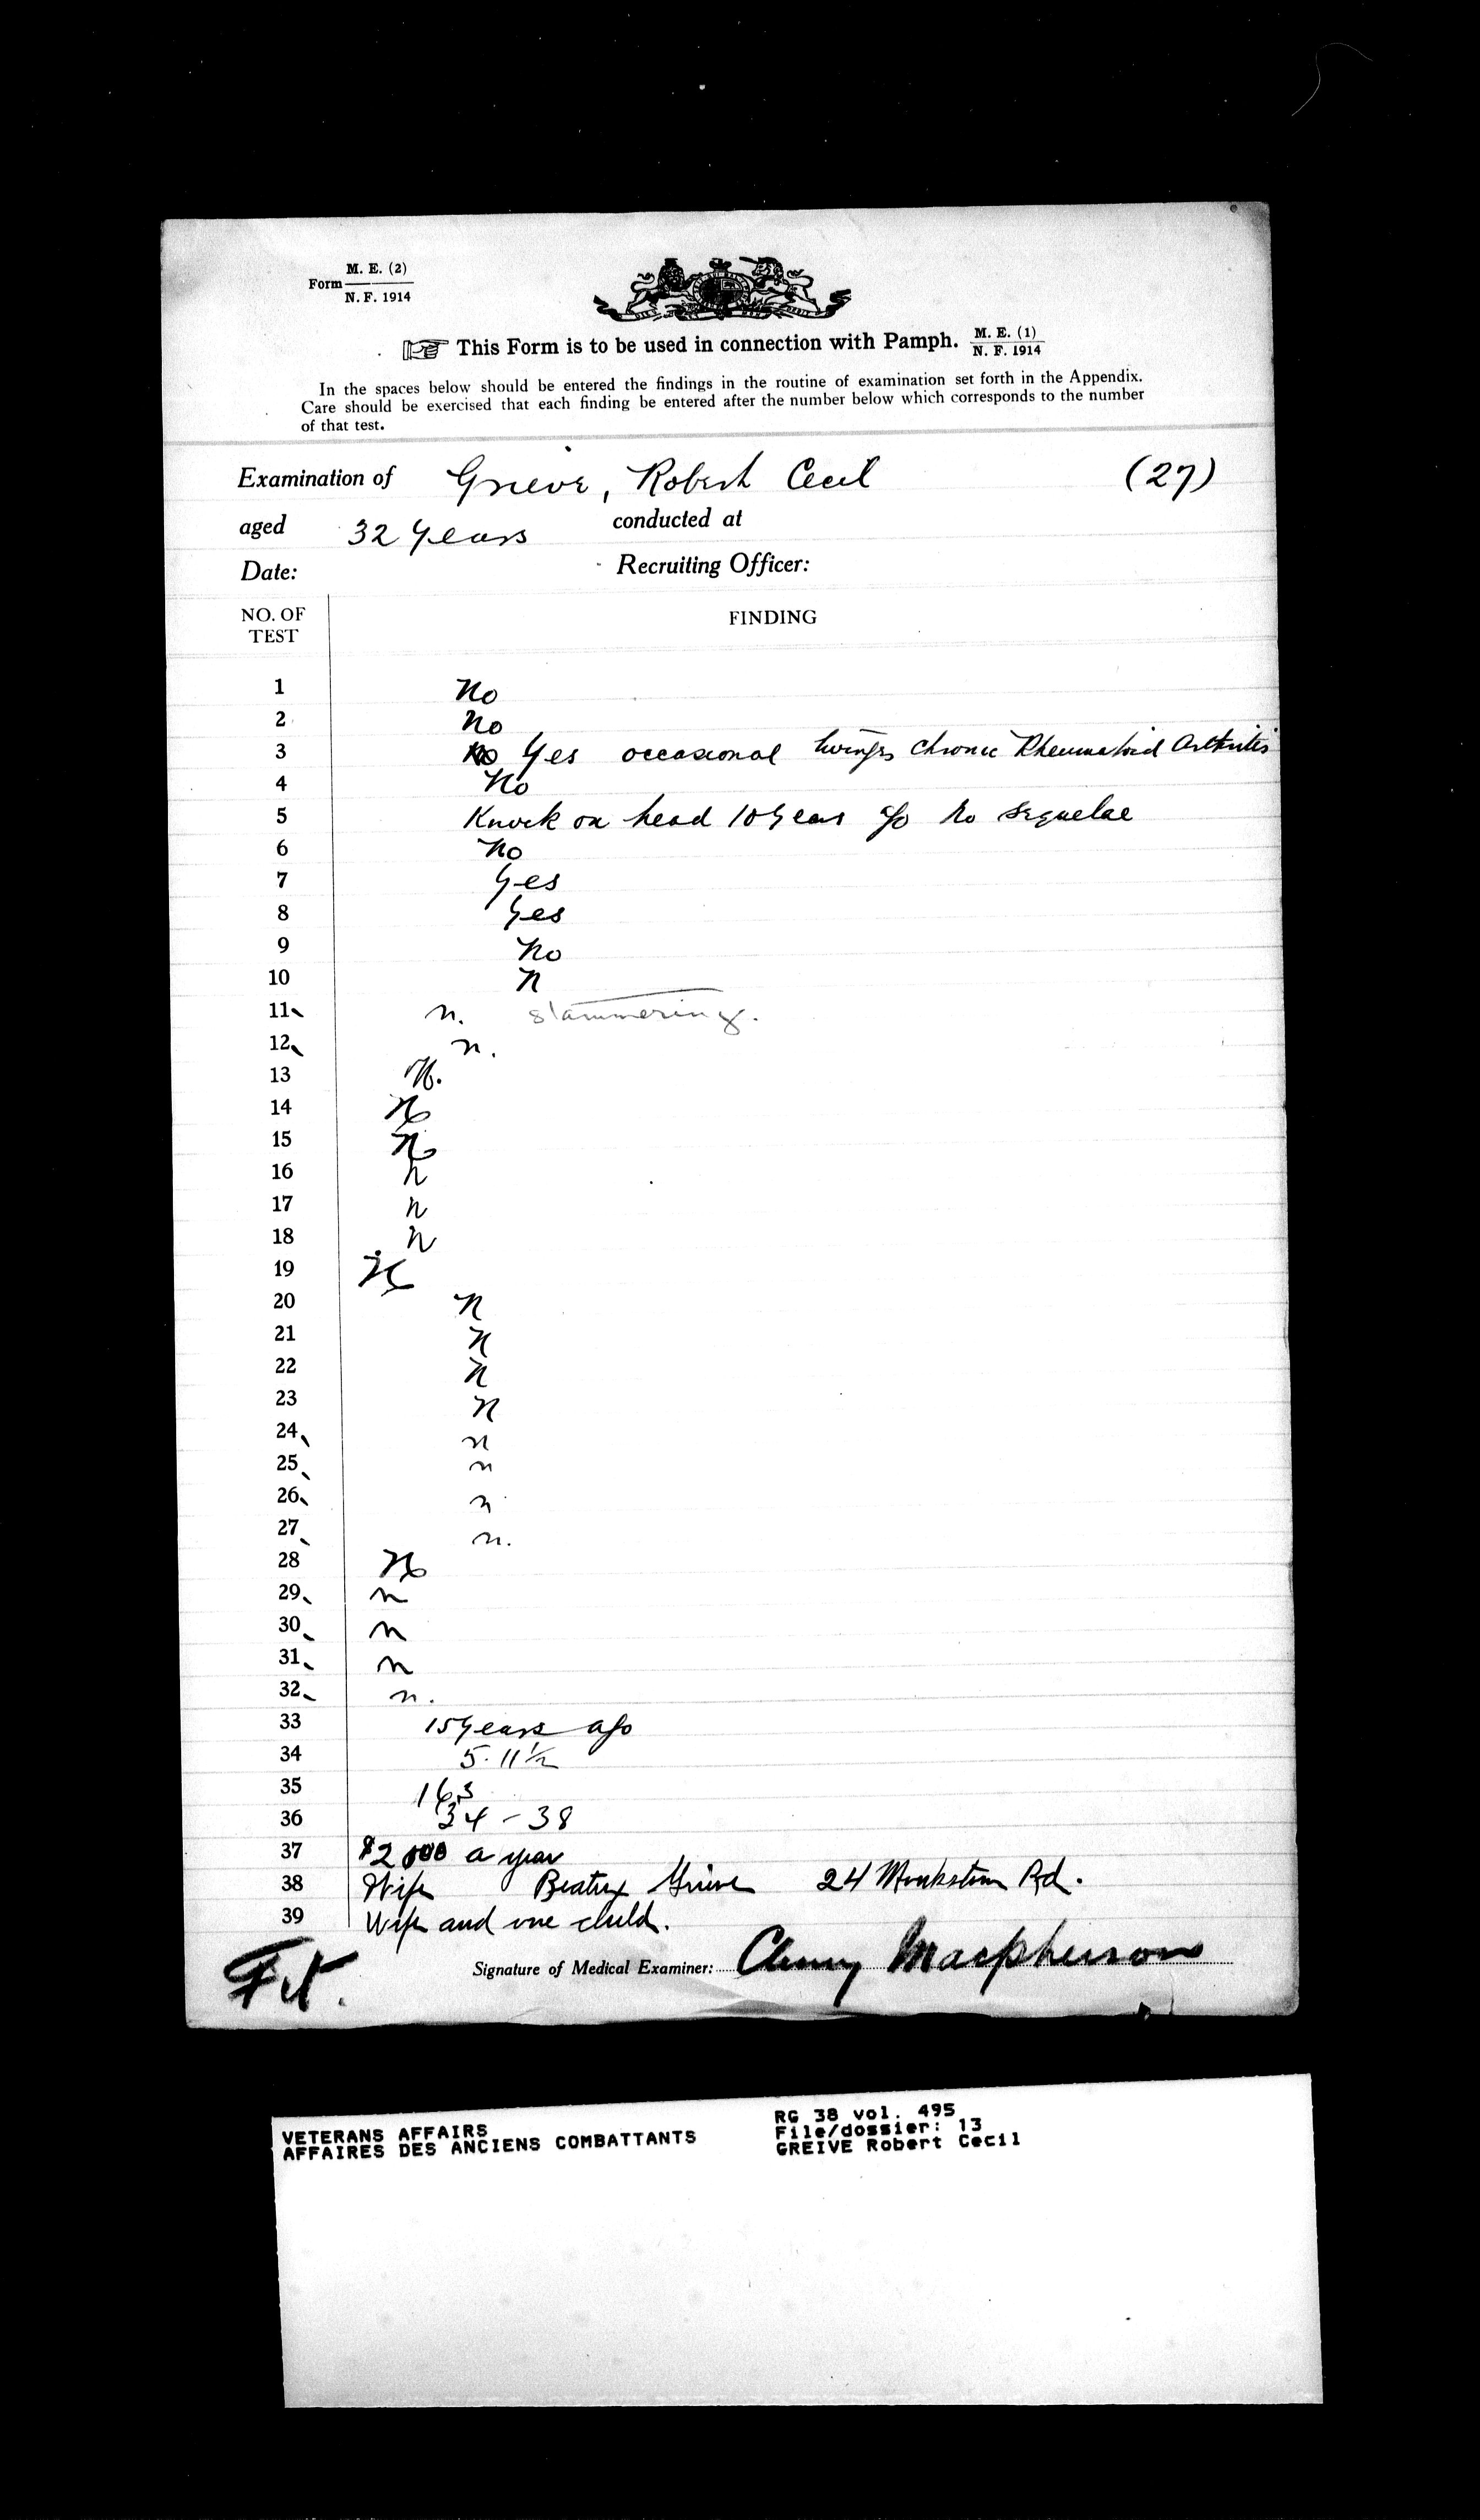 Form M. E. (2)
N. F. 1914
This Form is to be used in connection with Pamph. M. E. (1)
N. F. 1914
In the spaces below should be entered the findings in the routine of examination set forth in the Appendix.
Care should be exercised that each finding be entered after the number below which corresponds to the number
of that test.
Examination of Grieve, Robert Cecil (27)
aged 32 years conducted at
Date: Recruiting Officer:
NO. OF TEST FINDING
1 No
2 No
3 No Yes occasional twinges Chronic Rheumatoid Arthritis
4 No
5 Knock on head 10 years ago No sequelae
6 No
7 Yes
8 Yes
9 No
10 N
11 n. stammering.
12 n.
13 N.
14 No
15 No
16 n
17 n
18 n
19 N
20 N
21 N
22 N
23 N
24 n
25 n
26 n
27 n.
28 No
29 n
30 n
31 n
32 n.
33 15 years ago
34 5.11½
35 163
36 34 - 38
37 $2000 a year
38 Wife Beatrix Grieve 24 Monkstown Rd.
39 Wife and one child.
Fit. Signature of Medical Examiner: Cluny Macpherson
VETERANS AFFAIRS
AFFAIRES DES ANCIENS COMBATTANTS
RG 38 vol. 495
File/dossier: 13
GREIVE Robert Cecil